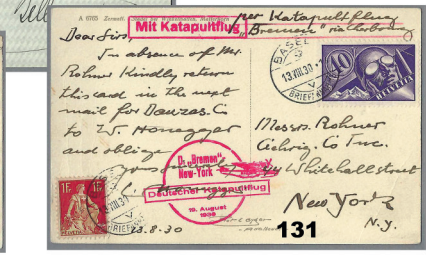 A 6703 Zermatt.
per Katapultflug
Mit Katapultflug
"Bremen" via Cherbourg
Dear Sirs
In absence of Mr.
Rohner Kindly return
this card in the next
mail for Danzas. Co
to W. Honegger
and oblige
BASEL
13.VIII.30
BRIEF
40
HELVETIA
Messrs. Rohner
Gehrig & Co Inc.
44 Whitehall street
New York
N.Y.
D. "Bremen"
New-York
Deutscher Katapultflug
19. August
1930
1F
1F
BASEL
13.VIII.30
BRIEF
13.8.30
131